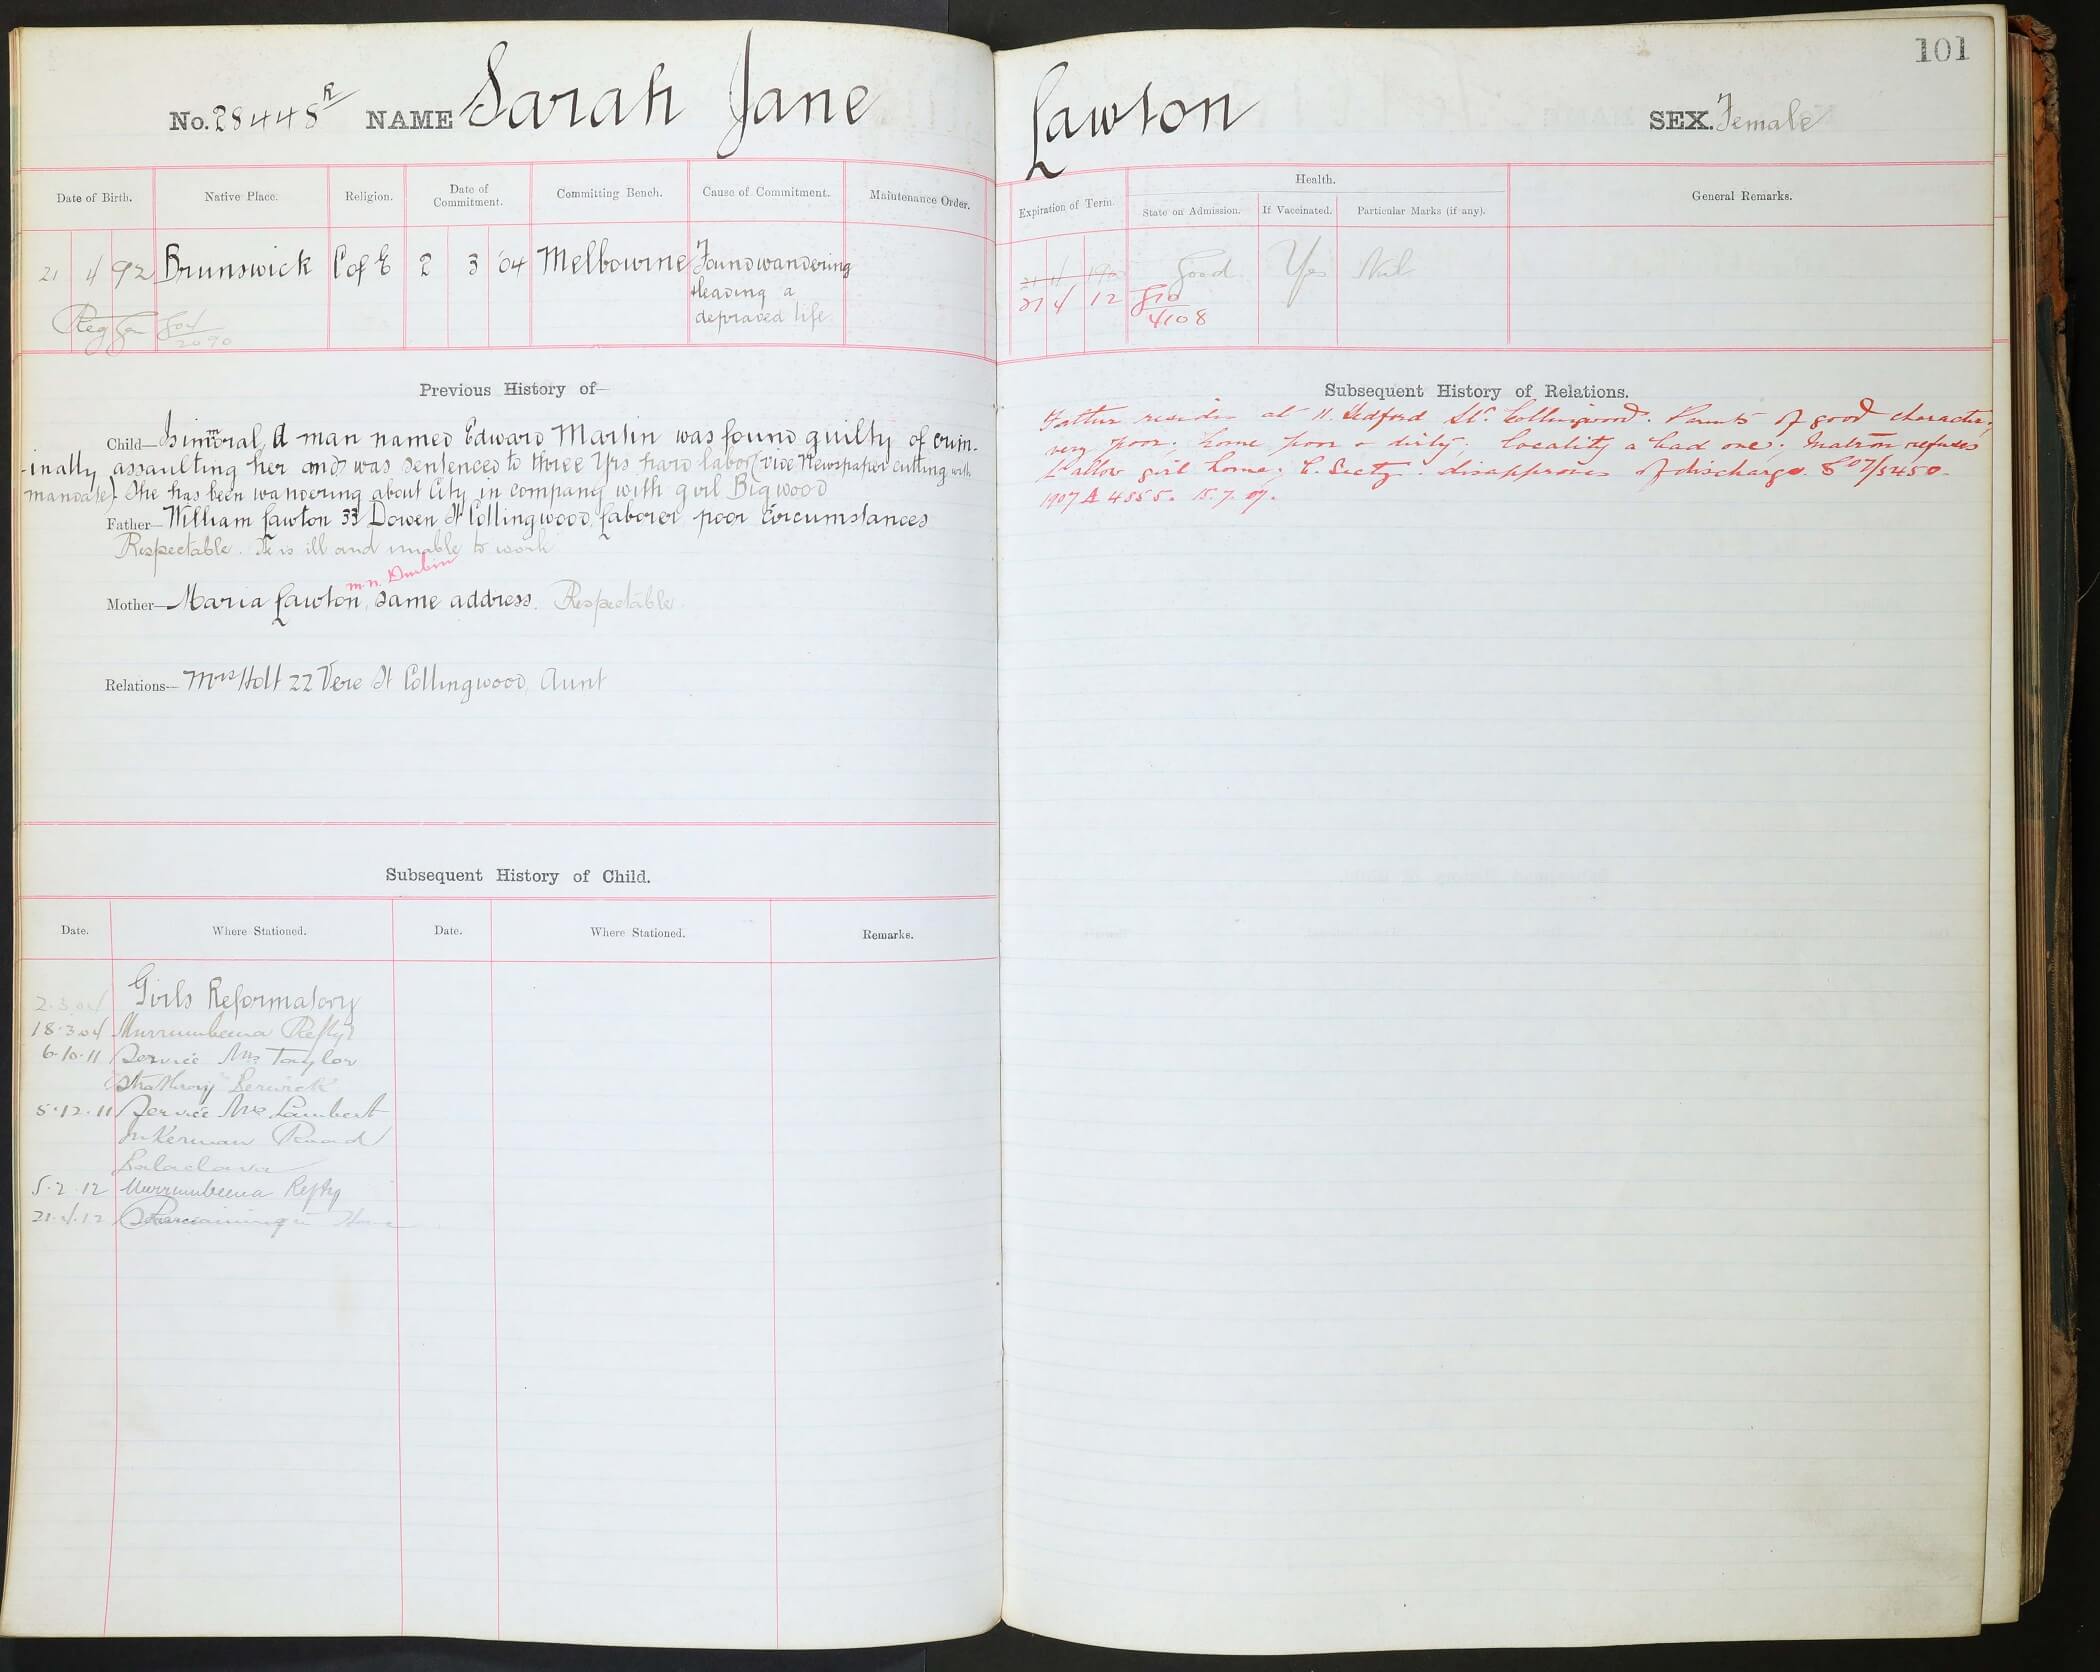 101
No. 28448 R NAME Sarah Jane Lawton SEX. Female
Date of Birth. Native Place. Religion. Date of Commitment. Committing Bench. Cause of Commitment. Maintenance Order.
21 4 92 Brunswick C of E 2 3 '04 Melbourne Found wandering
& leading a
depraved life
Reg Gen 904
2090
Expiration of Term. Health. General Remarks.
State on Admission. If Vaccinated. Particular Marks (if any).
Good Yes Nil
21 4 12 G10
4108
Previous History of—
Child— Is immoral, A man named Edward Martin was found guilty of crim-
-inally assaulting her and was sentenced to three Yrs hard labor (vide Newspaper cutting with
mandate). She has been wandering about City in company with girl Bigwood
Father— William Lawton 33 Dowen St Collingwood, Laborer poor circumstances
Respectable. He is ill and unable to work
m.n. Durbin
Mother— Maria Lawton, same address. Respectable.
Relations— Mrs Holt 22 Vere St Collingwood, Aunt
Subsequent History of Child.
Date. Where Stationed. Date. Where Stationed. Remarks.
2.3.04 Girls Reformatory
18.3.04 Murrumbeena Refty
6.10.11 Service Mrs Taylor
"Strathroy" Berwick
5.12.11 Service Mrs Lambert
Inkerman Road
Balaclava
5.2.12 Murrumbeena Refty
21.4.12 Remaining in Home
Subsequent History of Relations.
Father resides at 11. Bedford St. Collingwood. Parents of good character;
very poor; home poor & dirty; locality a bad one; Matron refuses
to allow girl home; C. Secty. disapproves of discharge. 07/5450.
1907 A 4555. 15.7.07.